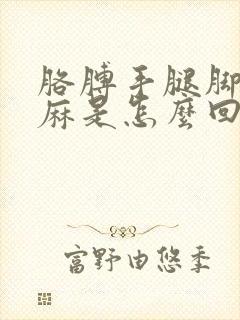 胳膊手腿脚
麻是怎麼回
富野由悠季